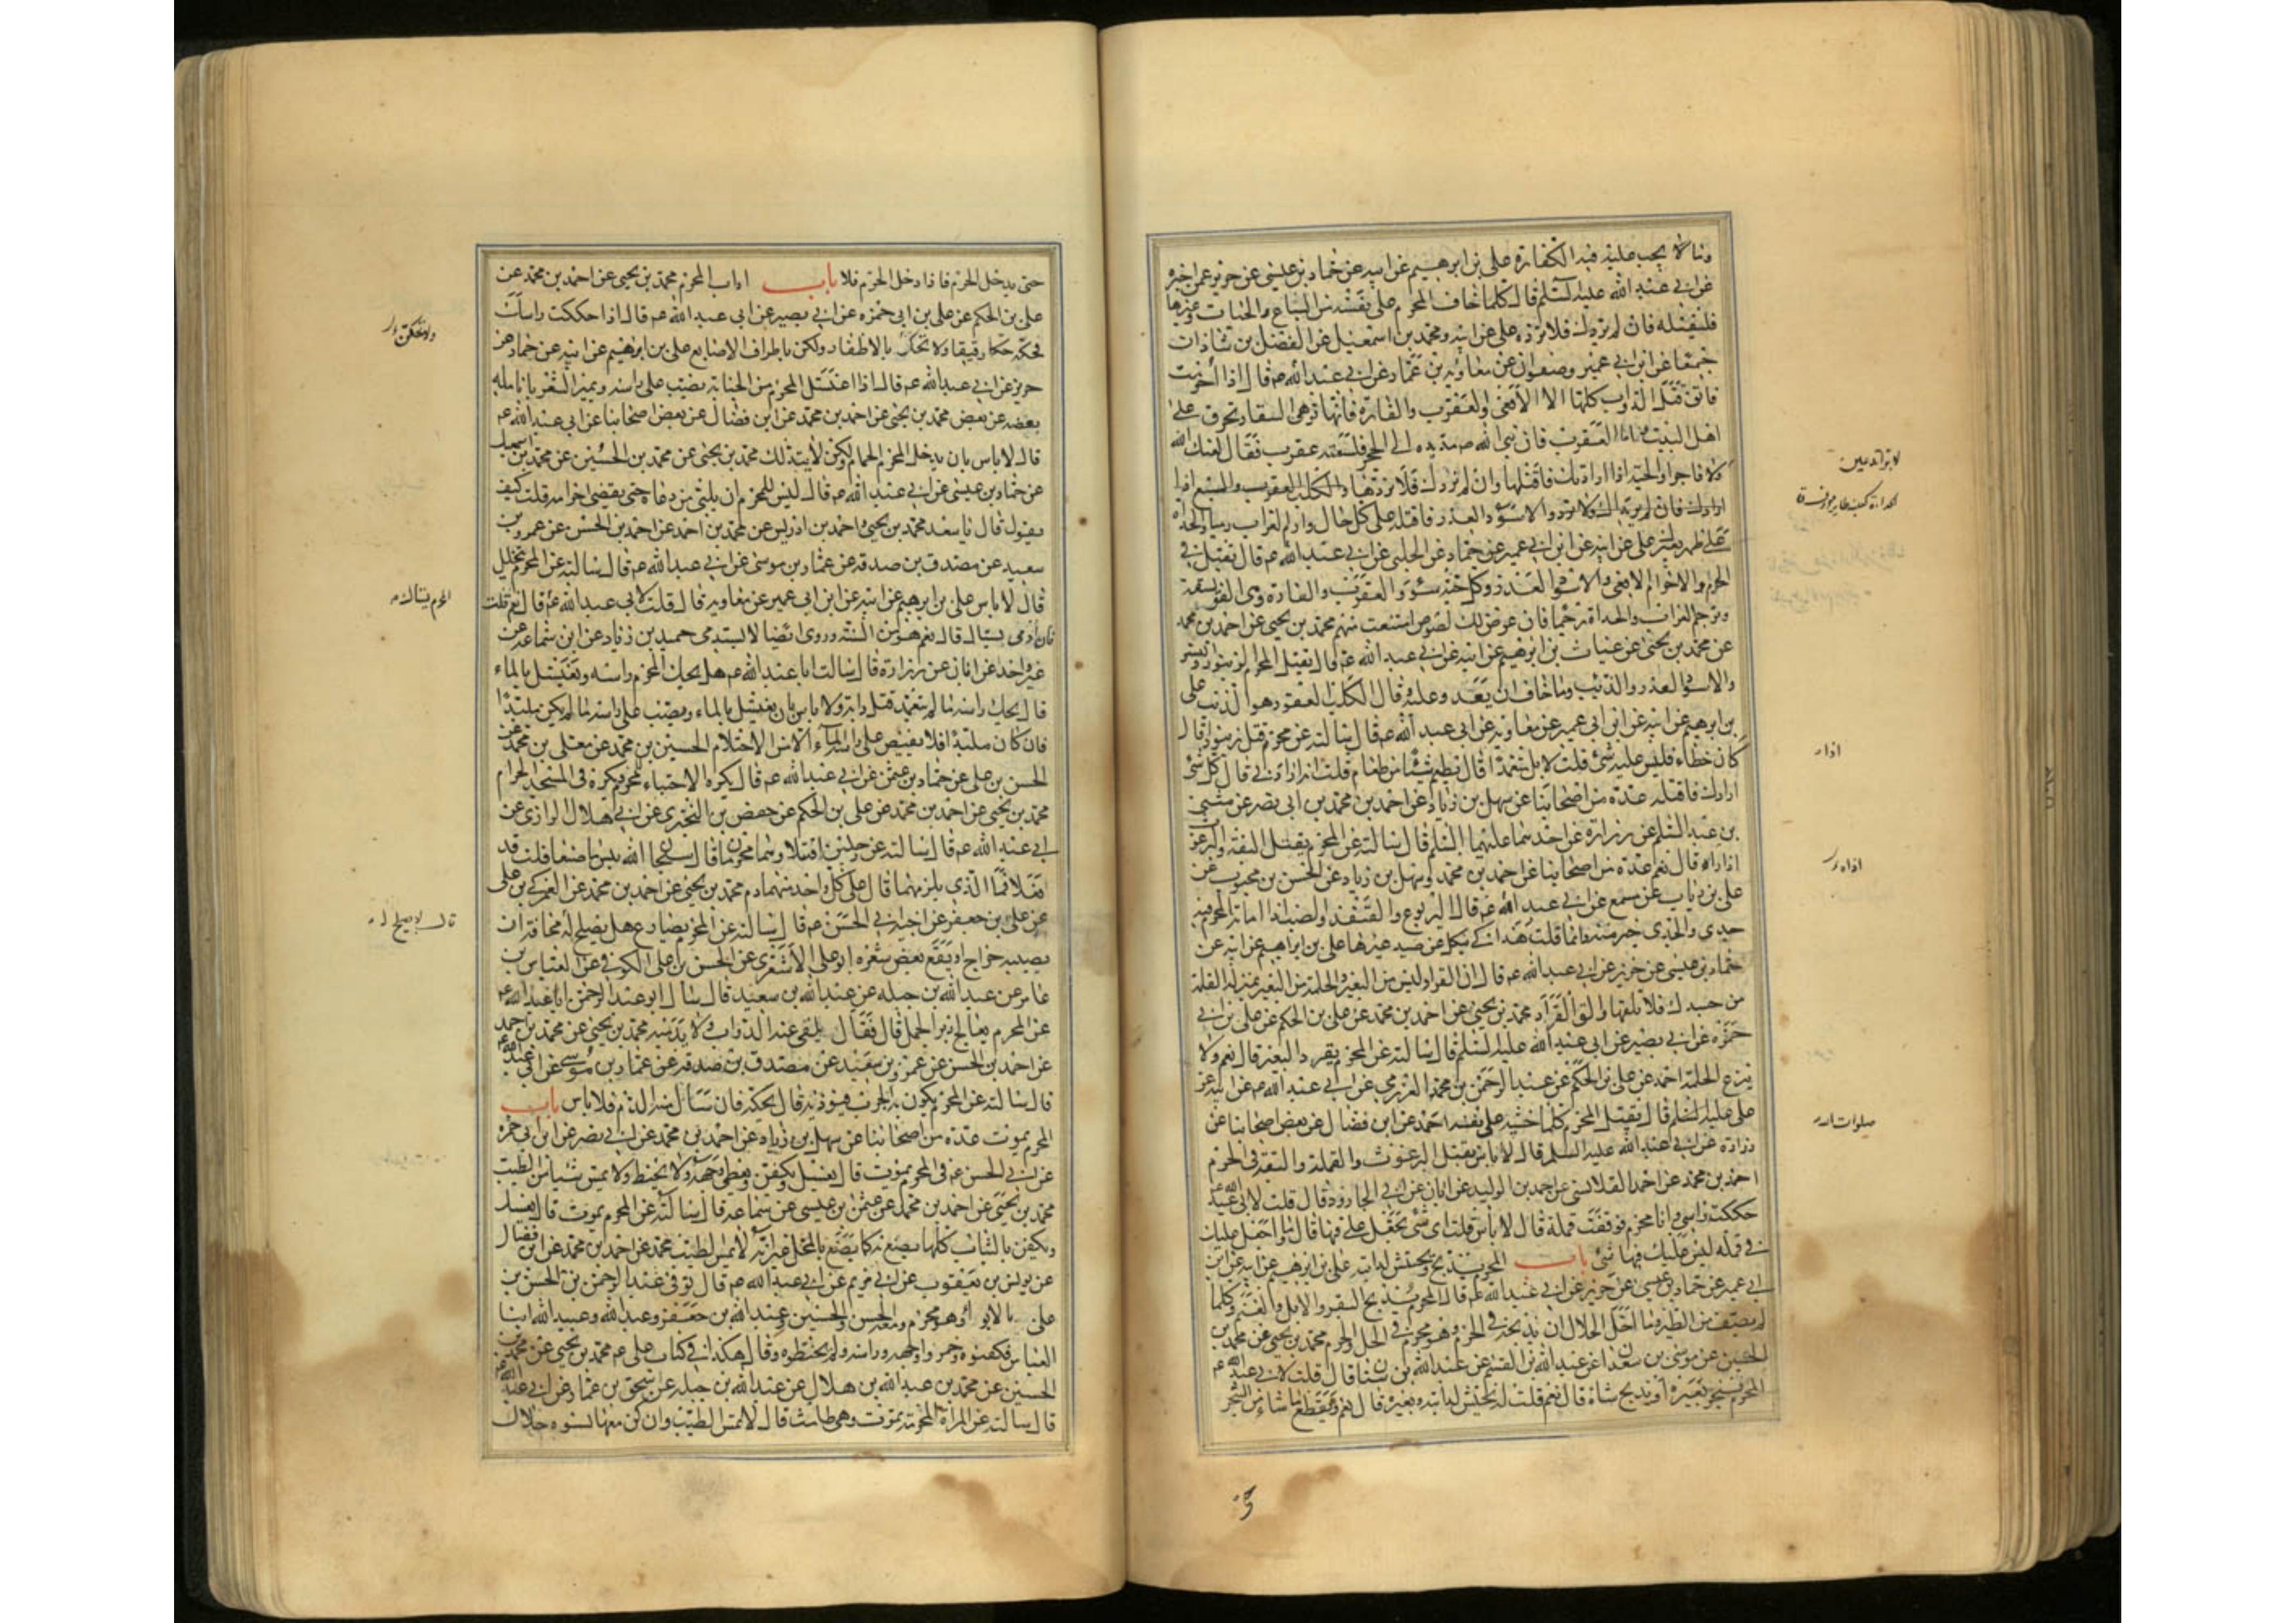 وما لا يجب عليه فيه الكفارة علي بن ابرهيم عن ابيه عن حماد بن عيسى عن حريز عمن اخبره
عن ابي عبد الله عليه السلم قال كلما خاف المحرم على نفسه من السباع والحيات وغيرها
فليقتله فان لم يردك فلا ترده علي عن ابيه ومحمد بن اسمعيل عن الفضل بن شاذان
جميعا عن ابن ابي عمير وصفوان عن معاوية بن عمار عن ابي عبد الله عم قال اذا احرمت
فاتق قتل الدواب كلها الا الافعى والعقرب والفارة فانها توهى السقا وتحرق على
اهل البيت واما العقرب فان نبي الله ص مد يده الى الحجر فلسعته عقرب فقال لعنك الله
لا برا ولا فاجرا والحية اذا ارادتك فاقتلها وان لم تردك فلا تردها والكلب العقور والسبع اذا
ارادك فان لم يريداك فلا تردهما والاسود الغدر فاقتله على كل حال وارم الغراب رميا والحداة
على ظهر بعيرك علي عن ابيه عن ابن ابي عمير عن حماد عن الحلبي عن ابي عبد الله عم قال تقتل في
الحرم والاحرام الافعى والاسود الغدر وكل حية سوء والعقرب والفارة وهى الفويسقة
وترجم الغراب والحداة رجما فان عرض لك لصوص امتنعت منهم محمد بن يحيى عن احمد بن محمد
عن محمد بن يحيى عن غياث بن ابرهيم عن ابيه عن ابي عبد الله عم قال يقتل المحرم الزنبور والنسر
والاسود الغدر والذئب وما خاف ان يعدو عليه قال الكلب العقور هو الذئب علي
بن ابرهيم عن ابيه عن ابن ابي عمير عن معاوية عن ابي عبد الله عم قال سالته عن محرم قتل زنبورا قال
كان خطاء فليس عليه شئ قلت لا بل متعمدا قال يطعم شيئا من طعام قلت انه ارادني قال كل شئ
ارادك فاقتله عدة من اصحابنا عن سهل بن زياد عن احمد بن محمد بن ابي نصر عن مثنى
بن عبد السلم عن زرارة عن احدهما عليهما السلم قال سالته عن المحرم يقتل البقة والبرغوث
اذا اراه قال نعم عدة من اصحابنا عن احمد بن محمد وسهل بن زياد عن الحسن بن محبوب عن
علي بن رياب عن مسمع عن ابي عبد الله عم قال اليربوع والقنفذ والضب اذا اماته المحرم فيه
جدى والجدى خير منه وانما قلت هذا كي ينكل عن صيد غيرها علي بن ابرهيم عن ابيه عن
حماد بن عيسى عن حريز عن ابي عبد الله عم قال ان القراد ليس من البعير والحلمة من البعير بمنزلة القملة
من جسدك فلا تلقها والق القراد محمد بن يحيى عن احمد بن محمد عن علي بن الحكم عن علي بن ابي
حمزه عن ابي بصير عن ابي عبد الله عليه السلم قال سالته عن المحرم يقرد البعير قال نعم ولا
ينزع الحلمة احمد عن علي بن الحكم عن عبد الرحمن بن محمد العزرمي عن ابي عبد الله عم عن ابيه عن
علي عليه السلم قال يقتل المحرم كلما خشيه على نفسه احمد عن ابن فضال عن بعض اصحابنا عن
زرارة عن ابي عبد الله عليه السلم قال لا باس بقتل البرغوث والقملة والبقة في الحرم
احمد بن محمد عن احمد القلانسي عن احمد بن الوليد عن ابان عن ابي الجارود قال قلت لابي عبد الله عم
حككت راسي وانا محرم فوقعت قملة قال لا باس قلت اى شئ تجعل علي فيها قال وما اجعل عليك
في قملة ليس عليك فيها شئ باب المحرم يذبح ويحتش لدابته علي بن ابرهيم عن ابيه عن ابن
ابي عمير عن حماد بن عيسى عن حريز عن ابي عبد الله عم قال المحرم يذبح البقر والابل والغنم وكلما
لم يصف من الطير وما احل للحلال ان يذبحه في الحرم وهو محرم في الحل والحرم محمد بن يحيى عن محمد بن
الحسين عن موسى بن سعدان عن عبد الله بن القسم عن عبد الله بن سنان قال قلت لابي عبد الله عم
المحرم ينحر بعيره او يذبح شاة قال نعم قلت له يحتش لدابته وبعيره قال نعم ويقطع ما شاء من الشجر
حتى
لا برا
اذا راد
حتى يدخل الحرم فاذا دخل الحرم فلا باب اداب المحرم محمد بن يحيى عن احمد بن محمد عن
علي بن الحكم عن علي بن ابي حمزه عن ابي بصير عن ابي عبد الله عم قال اذا حككت راسك
فحكه حكا رقيقا ولا تحكن بالاظفار ولكن باطراف الاصابع علي بن ابرهيم عن ابيه عن حماد عن
حريز عن ابي عبد الله عم قال اذا اغتسل المحرم من الجنابة يصب على راسه ويميز الشعر بانامله
بعضه عن بعض محمد بن يحيى عن احمد بن محمد عن ابن فضال عن بعض اصحابنا عن ابي عبد الله عم
قال لا باس بان يدخل المحرم الحمام ولكن لا يتدلك محمد بن يحيى عن محمد بن الحسين عن محمد بن اسمعيل
عن حماد بن عيسى عن ابي عبد الله عم قال ليس للمحرم ان يلبي من دعاه حتى يقضى احرامه قلت كيف
يقول قال يا سعد محمد بن يحيى واحمد بن ادريس عن محمد بن احمد عن احمد بن الحسن عن عمرو بن
سعيد عن مصدق بن صدقه عن عمار بن موسى عن ابي عبد الله عم قال سالته عن المحرم يتخلل
قال لا باس علي بن ابرهيم عن ابيه عن ابن ابي عمير عن معاوية قال قلت لابي عبد الله عم قال نعم قلت
فان ادمى يستاك قال نعم هو من السنة وروى ايضا لا يستدمى حميد بن زياد عن ابن سماعه عن
غير واحد عن ابان عن زرارة قال سالت ابا عبد الله عم هل يحك المحرم راسه ويغتسل بالماء
قال يحك راسه ما لم يتعمد قتل دابة ولا باس بان يغتسل بالماء ويصب على راسه ما لم يكن ملبدا
فان كان ملبدا فلا يفيض على راسه الماء الا من الاحتلام الحسين بن محمد عن معلى بن محمد عن
الحسن بن علي عن حماد بن عثمن عن ابي عبد الله عم قال يكره الاحتباء للمحرم ويكره في المسجد الحرام
محمد بن يحيى عن احمد بن محمد عن علي بن الحكم عن حفص بن البختري عن ابي هلال الرازي عن
ابي عبد الله عم قال سالته عن رجلين اقتتلا وهما محرمان قال سبحان الله بئس ما صنعا قلت قد
فعلا فما الذي يلزمهما قال على كل واحد منهما دم محمد بن يحيى عن احمد بن محمد عن العمركي بن علي
عن علي بن جعفر عن اخيه ابي الحسن عم قال سالته عن المحرم يصارع هل يصلح له مخافة ان
يصيبه جراح او يقع بعض شعره ابو علي الاشعري عن الحسن بن علي الكوفي عن العباس بن
عامر عن عبد الله بن جبله عن عبد الله بن سعيد قال سال ابو عبد الرحمن ابا عبد الله عم
عن المحرم يعالج دبر الجمل قال فقال يلقى عنه الدواب ولا يدميه محمد بن يحيى عن محمد بن احمد
عن احمد بن الحسن عن عمرو بن سعيد عن مصدق بن صدقه عن عمار بن موسى عن ابي عبد الله عم
قال سالته عن المحرم يكون به الجرب فيوذيه قال يحكه فان سال منه الدم فلا باس باب
المحرم يموت عدة من اصحابنا عن سهل بن زياد عن احمد بن محمد عن ابي نصر عن ابن ابي حمزه
عن ابي الحسن عم في المحرم يموت قال يغسل ويكفن ويغطى وجهه ولا يحنط ولا يمس شيئا من الطيب
محمد بن يحيى عن احمد بن محمد عن عثمن بن عيسى عن سماعه قال سالته عن المحرم يموت قال يغسل
ويكفن بالثياب كلها يصنع به كما يصنع بالمحل غير انه لا يمس الطيب محمد عن احمد بن محمد عن ابن فضال
عن يونس بن يعقوب عن ابي مريم عن ابي عبد الله عم قال توفى عبد الرحمن بن الحسن بن
علي بالابواء وهو محرم ومعه الحسن والحسين وعبد الله بن جعفر وعبد الله وعبيد الله ابنا
العباس فكفنوه وخمروا وجهه وراسه ولم يحنطوه وقال هكذا في كتاب علي عم محمد بن يحيى عن محمد بن
الحسين عن محمد بن عبد الله بن هلال عن عبد الله بن جبله عن اسحق بن عمار عن ابي عبد الله عم
قال سالته عن المراة المحرمة تموت وهى طامث قال لا تمس الطيب وان كن معها نسوه حلال
ولا تحكن
المحرم يستاك
قال لا يصلح له